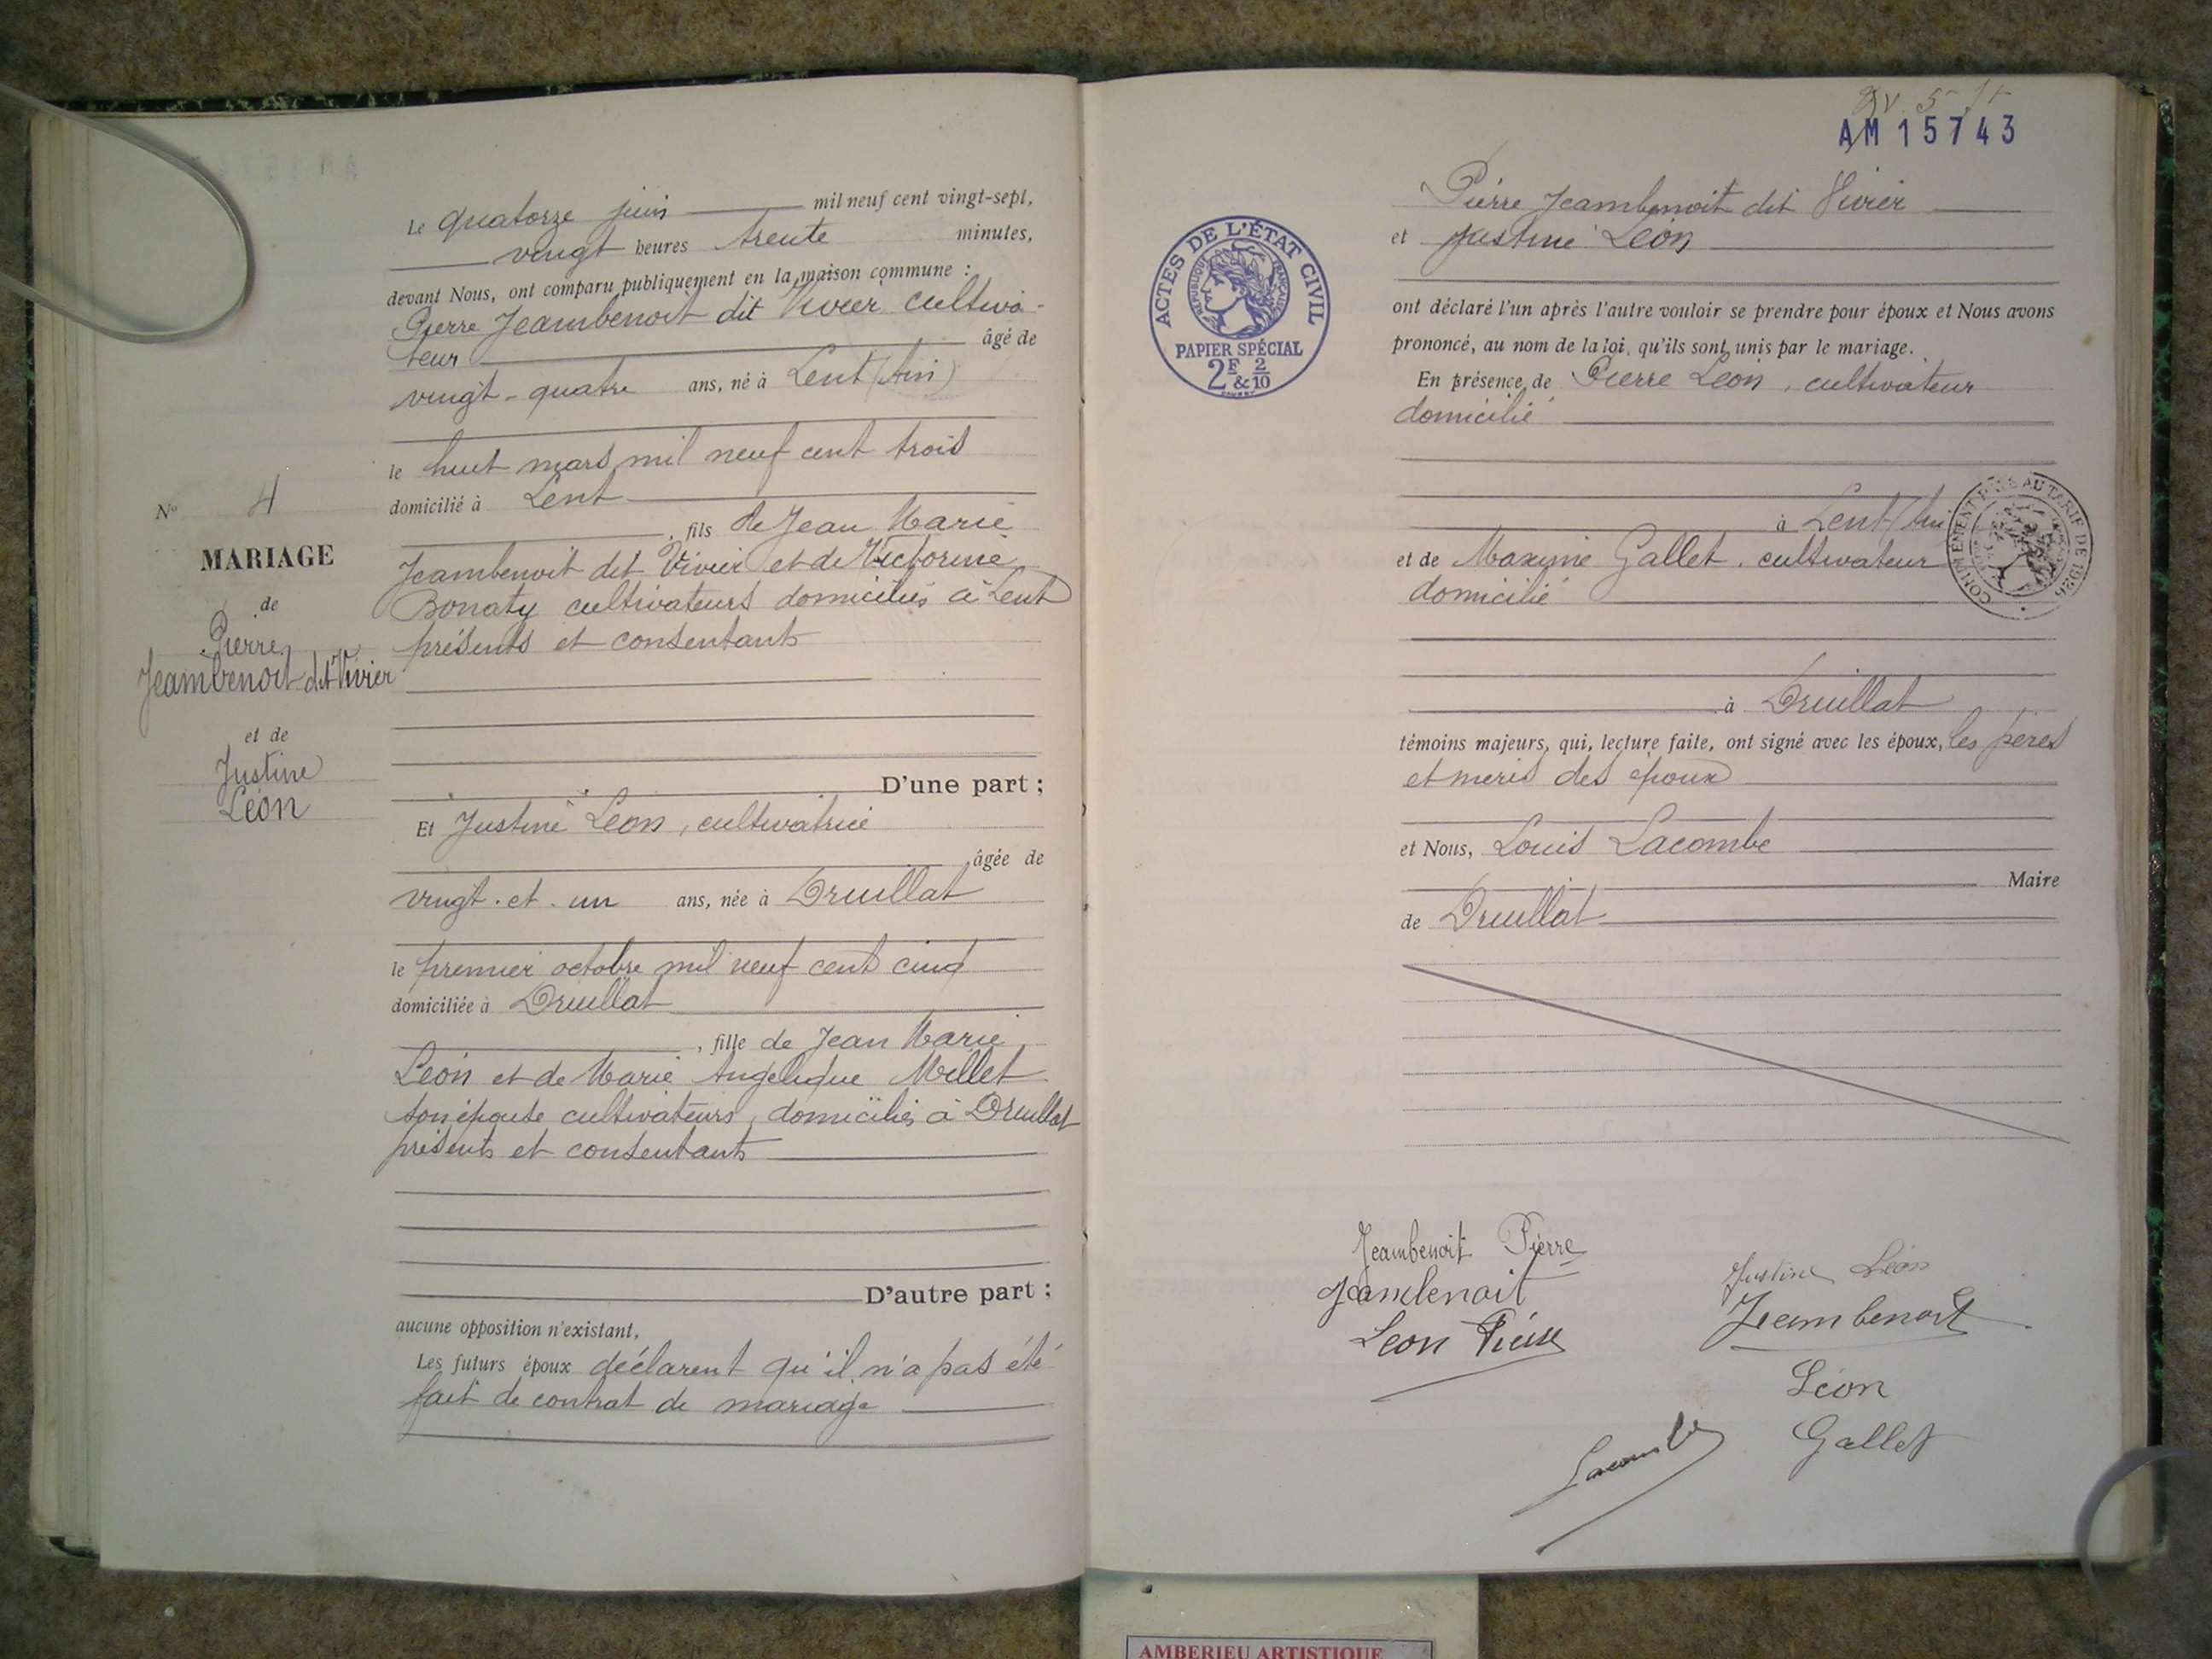 Le quatorze juin mil neuf cent vingt-sept,
vingt heures trente minutes,
devant Nous, ont comparu publiquement en la maison commune :
Pierre Jeambenoit dit Vivier cultiva-
teur âgé de
vingt-quatre ans, né à Lent (Ain)
le huit mars mil neuf cent trois
domicilié à Lent
, fils de Jean Marie
Jeambenoit dit Vivier et de Victorine
Bonaty cultivateurs domiciliés à Lent
présents et consentants
D'une part ;
Nº 4
MARIAGE
de
Pierre
Jeambenoit dit Vivier
et de
Justine
Léon
Et Justine Léon, cultivatrice
âgée de
vingt-et-un ans, née à Druillat
le premier octobre mil neuf cent cinq
domiciliée à Druillat
, fille de Jean Marie
Léon et de Marie Angelique Millet
son épouse cultivateurs, domiciliés à Druillat
présents et consentants
D'autre part :
aucune opposition n'existant,
Les futurs époux déclarent qu'il n'a pas été
fait de contrat de mariage
AM 15743
Pierre Jeambenoit dit Vivier
et Justine Léon
ACTES DE L'ÉTAT CIVIL
RÉPUBLIQUE FRANÇAISE
PAPIER SPÉCIAL
2F 2
&10
ont déclaré l'un après l'autre vouloir se prendre pour époux et Nous avons
prononcé, au nom de la loi, qu'ils sont unis par le mariage.
En présence de Pierre Léon, cultivateur
domicilié
à Lent (Ain
et de Maxime Gallet, cultivateur
domicilié
à Druillat
témoins majeurs, qui, lecture faite, ont signé avec les époux, les pères
et mères des époux
et Nous, Louis Lacombe
Maire
de Druillat
Jeambenoit Pierre
Jeambenoit
Leon Pierre
Justine Léon
Jeambenoit
Léon
Gallet
Lacombe
AMBERIEU ARTISTIQUE